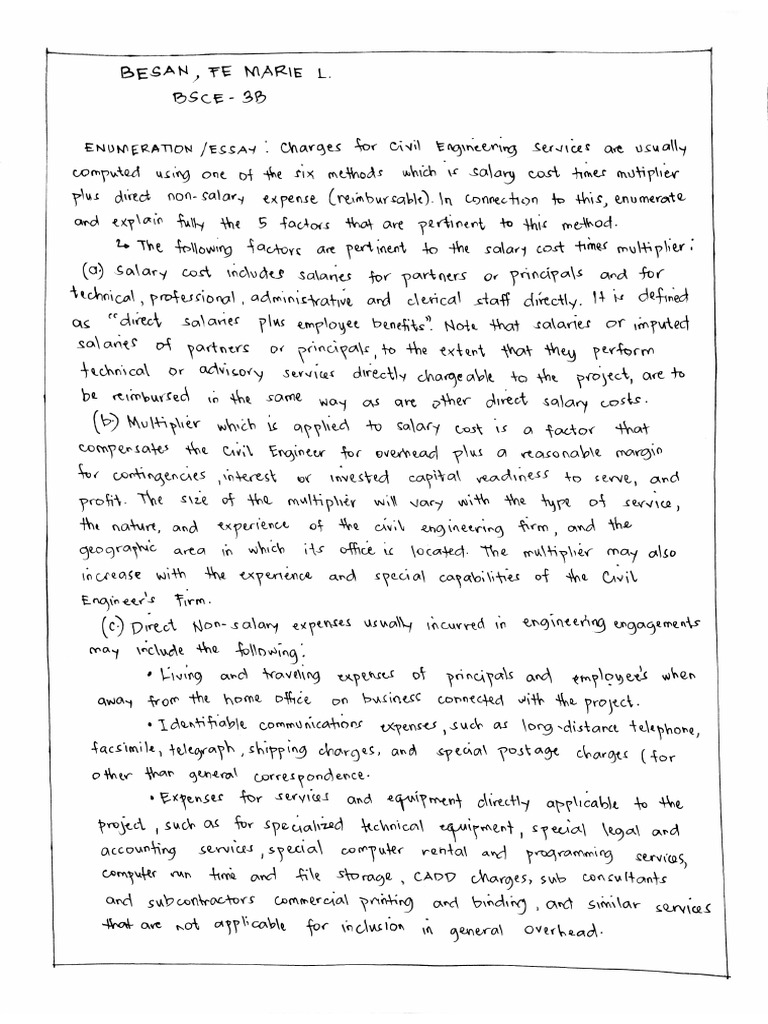 BESAN, FE MARIE L.
BSCE - 3B
ENUMERATION/ESSAY: Charges for Civil Engineering Services are usually
computed using one of the six methods which is salary cost times mutiplier
plus direct non-salary expense (reimbursable). In connection to this, enumerate
and explain fully the 5 factors that are pertinent to this method.
↳ The following factors are pertinent to the salary cost times multiplier:
(a) Salary cost includes salaries for partners or principals and for
technical, professional, administrative and clerical staff directly. It is defined
as "direct salaries plus employee benefits". Note that salaries or imputed
salaries of partners or principals, to the extent that they perform
technical or advisory services directly chargeable to the project, are to
be reimbursed in the same way as are other direct salary costs.
(b.) Multiplier which is applied to salary cost is a factor that
compensates the Civil Engineer for overhead plus a reasonable margin
for contingencies, interest or invested capital readiness to serve, and
profit. The size of the multiplier will vary with the type of service,
the nature, and experience of the civil engineering firm, and the
geographic area in which its office is located. The multiplier may also
increase with the experience and special capabilities of the Civil
Engineer's Firm.
(c.) Direct Non-salary expenses usually incurred in engineering engagements
may include the following:
• Living and traveling expenses of principals and employee's when
away from the home office on business connected with the project.
• Identifiable communications expenses, such as long-distance telephone,
facsimile, telegraph, shipping charges, and special postage charges (for
other than general correspondence.
• Expenses for services and equipment directly applicable to the
project, such as for specialized technical equipment, special legal and
accounting services, special computer rental and programming services,
computer run time and file storage, CADD charges, sub consultants
and subcontractors commercial printing and binding, and similar services
that are not applicable for inclusion in general overhead.